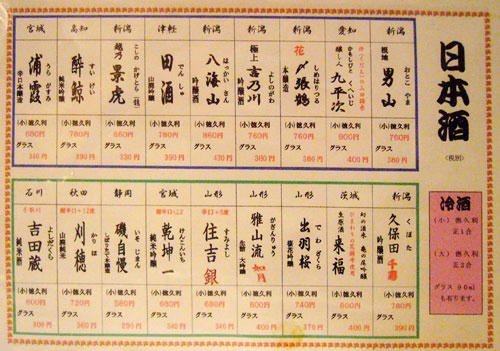 日本酒
(税別)
新潟
根地
男山
おとこ やま
(小)徳久利
760円
グラス
380円
愛知
醸し人
かもしびと
九平次
くへいじ
(小)徳久利
900円
グラス
400円
新潟
花
〆張鶴
しめはりつる
本醸造
(小)徳久利
760円
グラス
380円
新潟
極上
吉乃川
よしのがわ
吟醸酒
(小)徳久利
760円
グラス
380円
新潟
八海山
はっかい さん
吟醸酒
(小)徳久利
860円
グラス
430円
津軽
田酒
でん しゅ
山廃吟醸
(小)徳久利
780円
グラス
390円
新潟
越乃
景虎
こしの かげとら
(小)徳久利
660円
グラス
330円
高知
酔鯨
すい げい
純米吟醸
(小)徳久利
780円
グラス
390円
宮城
浦霞
うら がすみ
辛口本醸造
(小)徳久利
680円
グラス
340円
新潟
久保田 千寿
くぼた
吟醸酒
(小)徳久利
780円
グラス
390円
茨城
来福
(小)徳久利
800円
グラス
400円
山形
出羽桜
でわ ざくら
桜花吟醸
(小)徳久利
740円
グラス
370円
山形
雅山流
がざんりゅう
(小)徳久利
800円
グラス
400円
山形
辛口+5度
住吉 銀
すみよし
(小)徳久利
680円
グラス
340円
宮城
乾坤一
けんこんいち
純米吟醸
(小)徳久利
680円
グラス
340円
静岡
磯自慢
いそ じまん
しぼりたて本醸造
(小)徳久利
580円
グラス
290円
秋田
超辛口+12度
刈穂
かり ほ
山廃純米
(小)徳久利
720円
グラス
360円
石川
手取川
吉田蔵
よしだくら
純米酒
(小)徳久利
600円
グラス
300円
冷酒
(小)徳久利
正1合
(大)徳久利
正2合
グラス 90ml
も有ります。